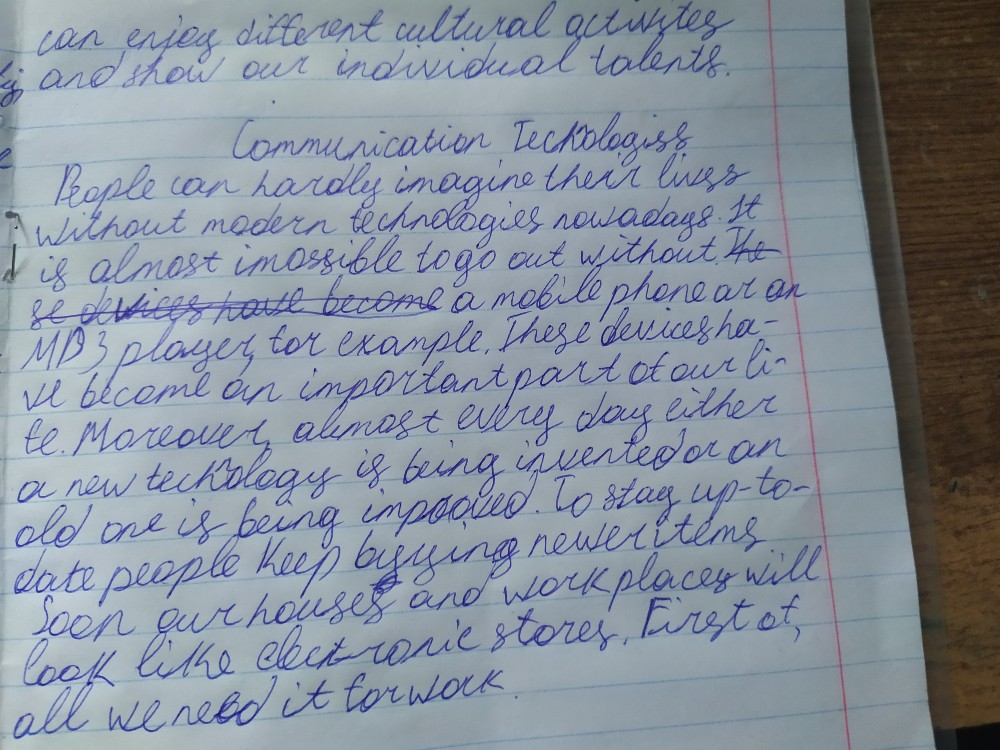 can enjoy different cultural activites
and show our individual talents.
Communication Tecknologiss
People can hardly imagine their lives
without modern technologies nowadays. It
is almost imossible to go out without. The
se devices have become a mobile phone or an
MP3 player, for example. These devices ha-
ve become an important part of our li-
fe. Moreover, almost every day either
a new tecknology is being invented or an
old one is being improoved. To stay up-to-
date people keep buying newer items
Soon our houses and workplaces will
look like electronic stores. First of,
all we need it for work.